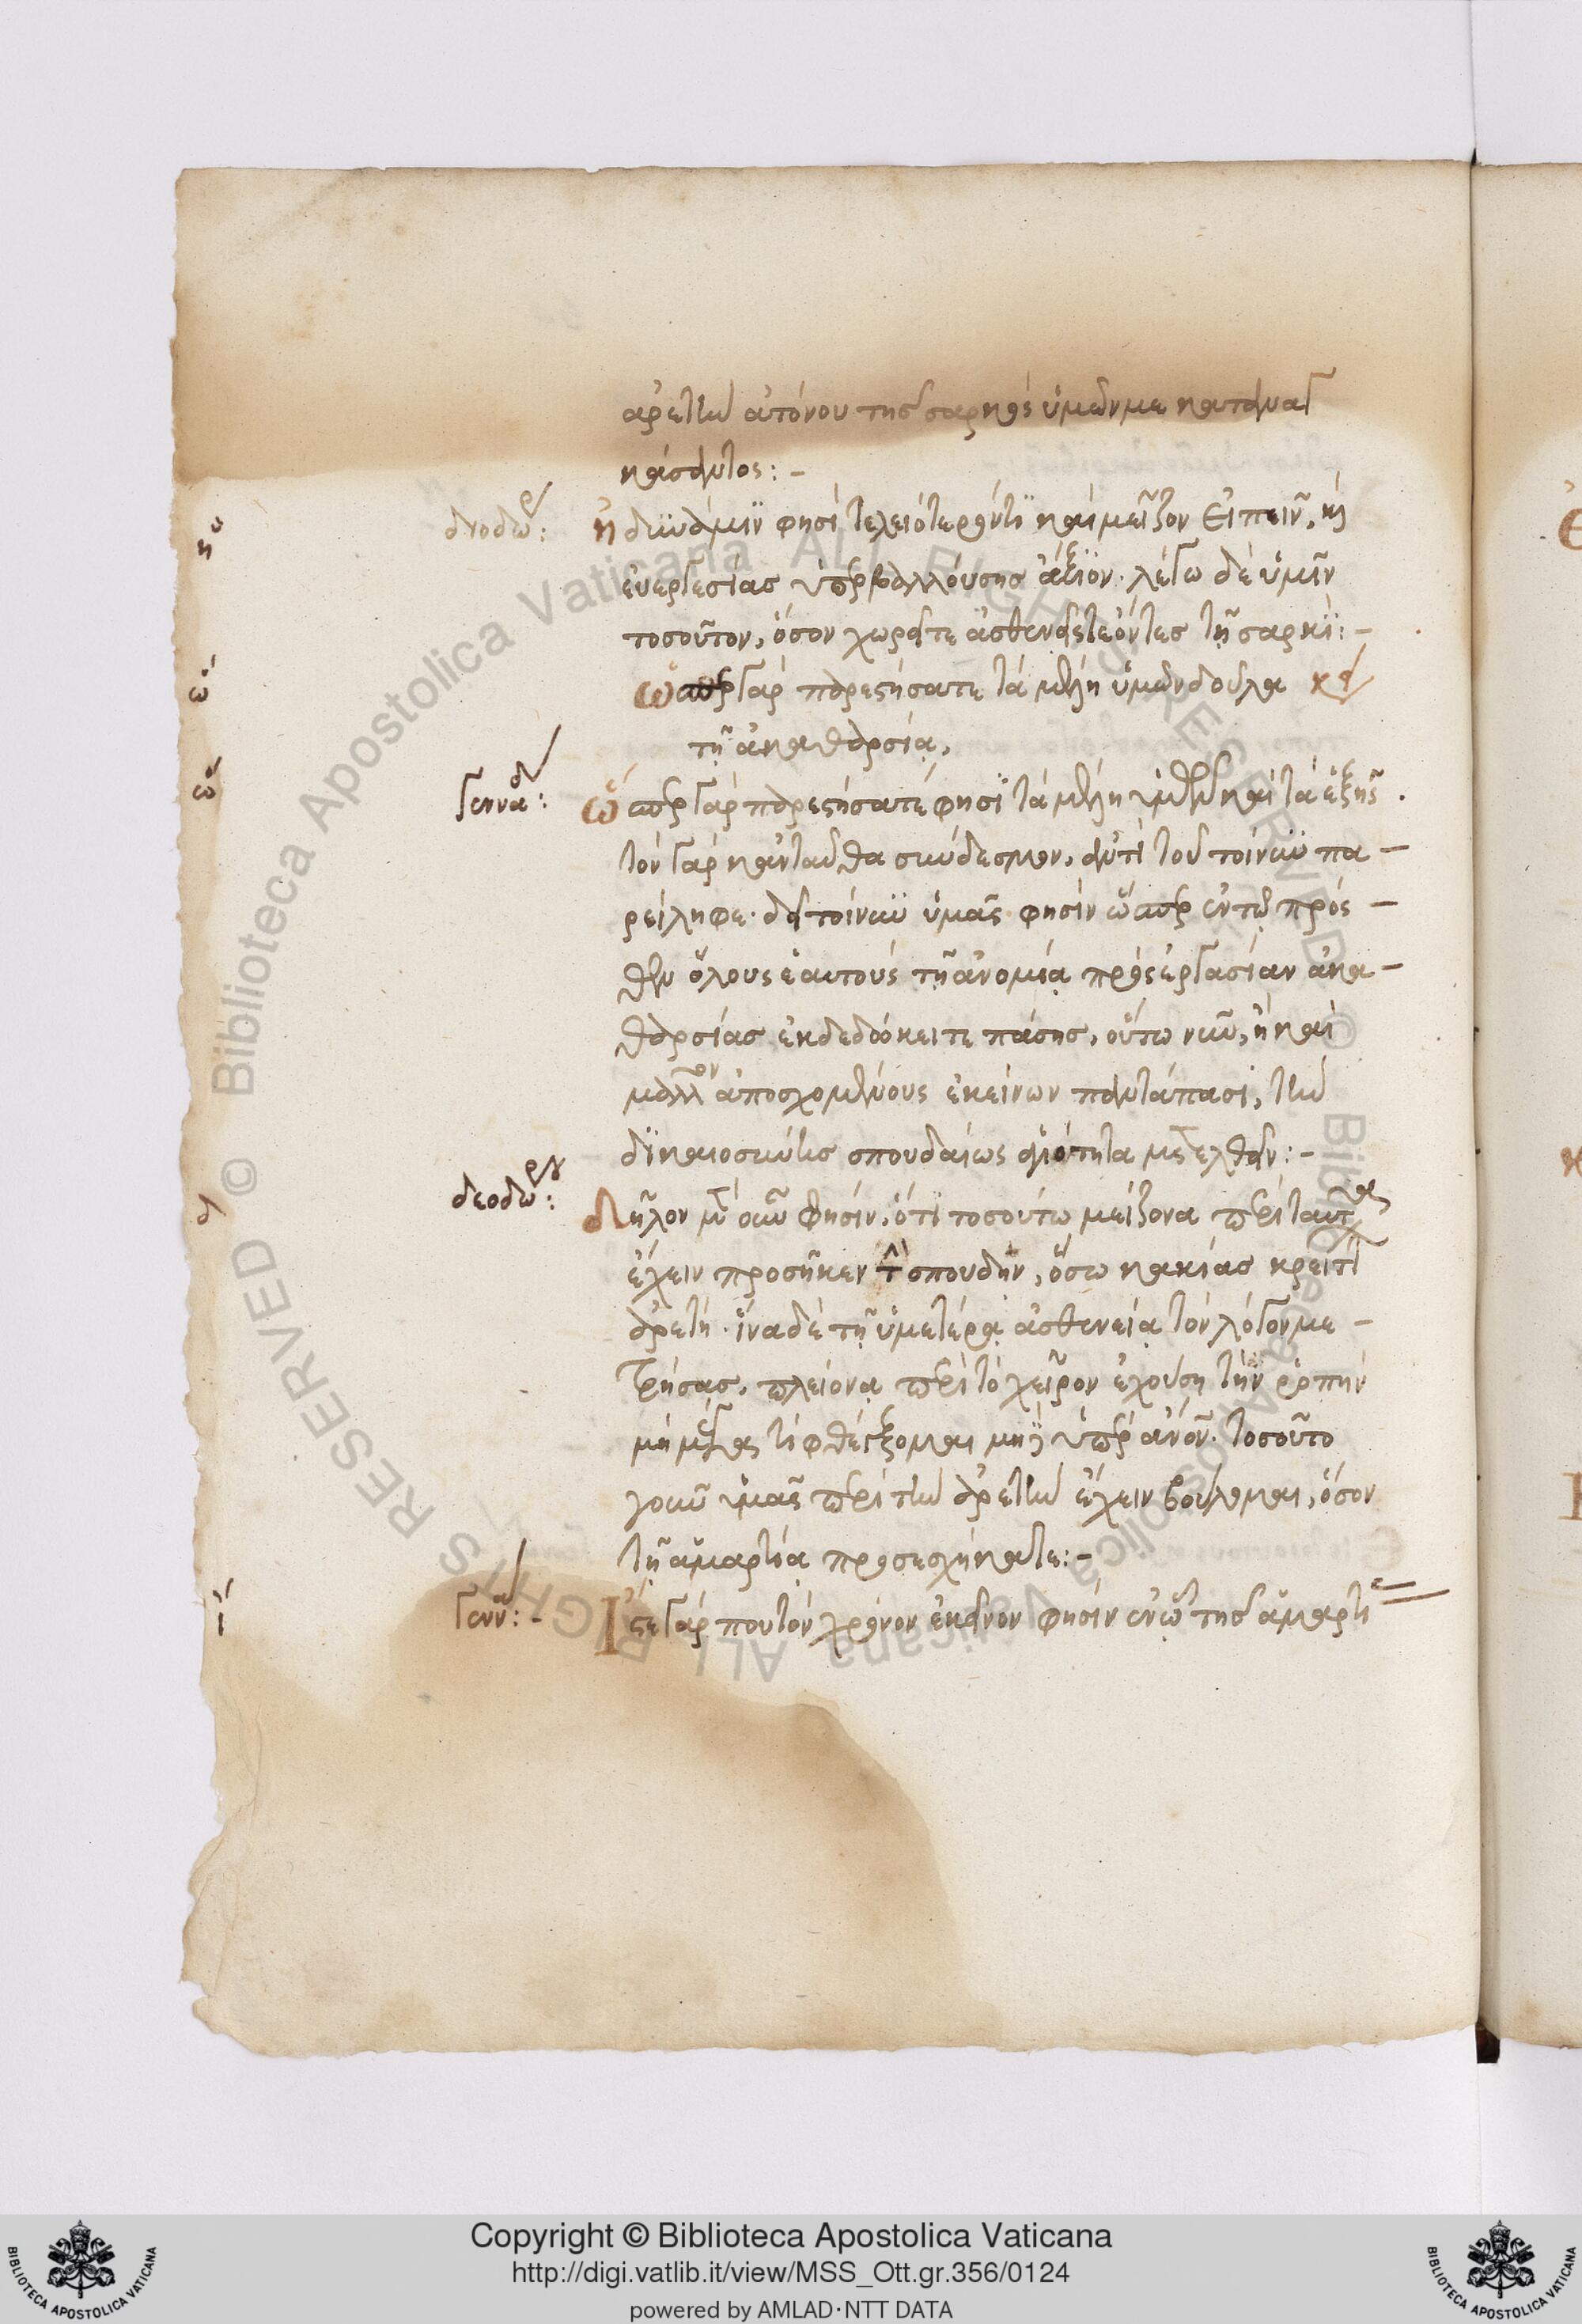 ἀρετὴν ἀτόνου τῆς σαρκὸς ὑμῶν με καταναγ
κάσαντος: -
διοδώρ: ἠδυνάμην φησὶ τελειότερόν τι καὶ μεῖζον εἰπεῖν, καὶ
εὐεργεσίας ὑπερβαλλούσης ἄξιον. λέγω δὲ ὑμῖν
τοσοῦτον, ὅσον χωρεῖτε ἀσθενεῖς ἔτι ὄντες τῇ σαρκί: -
ὥσπερ γὰρ παρεστήσατε τὰ μέλη ὑμῶν δοῦλα κε
τῇ ἀκαθαρσίᾳ,
γενναδ: ὥσπερ γὰρ παρεστήσατέ φησι τὰ μέλη ὑμῶν καὶ τὰ ἑξῆς.
τὸν γὰρ κἀνταῦθα σύνδεσμον, ἀντὶ τοῦ τοίνυν πα -
ρείληφε. δεῖ τοίνυν ὑμᾶς φησὶν ὥσπερ ἐν τῷ πρόσ -
θεν ὅλους ἑαυτοὺς τῇ ἀνομίᾳ πρὸς ἐργασίαν ἀκα -
θαρσίας ἐκδεδώκειτε πάσης, οὕτω νῦν, ἢ καὶ
μᾶλλον ἀποσχομένους ἐκείνων παντάπασι, τὴν
δικαιοσύνης σπουδαίως ἁγιότητα μετελθεῖν: -
θεοδώρου: δῆλον μὲν οὖν φησίν, ὅτι τοσούτῳ μείζονα περὶ ταύτας
ἔχειν προσῆκεν τὴν σπουδὴν, ὅσῳ κακίας κρείττ
ἀρετή. ἵνα δὲ τῇ ὑμετέρᾳ ἀσθενείᾳ τὸν λόγον με -
τρήσας, πλείονα περὶ τὸ χεῖρον ἐχούσῃ τὴν ῥοπὴν
μὴ μέγα τι φθέγξομαι μηδ ὑπὲρ ἄνον. τοσοῦτο
γοῦν ὑμᾶς περὶ τὴν ἀρετὴν ἔχειν βούλομαι, ὅσον
τῇ ἁμαρτίᾳ προσεσχήκατε: -
γενν: - Ἴστε γάρ που τὸν χρόνον ἐκεῖνον φησὶν ἐν ᾧ τῆς ἁμαρτί
Copyright © Biblioteca Apostolica Vaticana
http://digi.vatlib.it/view/MSS_Ott.gr.356/0124
powered by AMLAD·NTT DATA